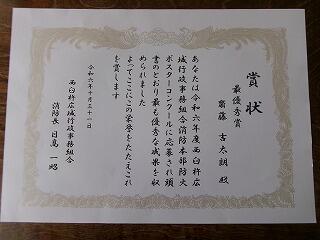 賞状
最優秀賞
齋藤 吉太朗 殿
あなたは令和六年度西臼杵広
域行政事務組合消防本部防火
ポスターコンクールに応募され頭
書のとおり最も優秀な成果を収
められました
よってここにこの栄誉をたたえこれ
を賞します
令和六年十月三十一日
西臼杵広域行政事務組合
消防長 日髙 一昭